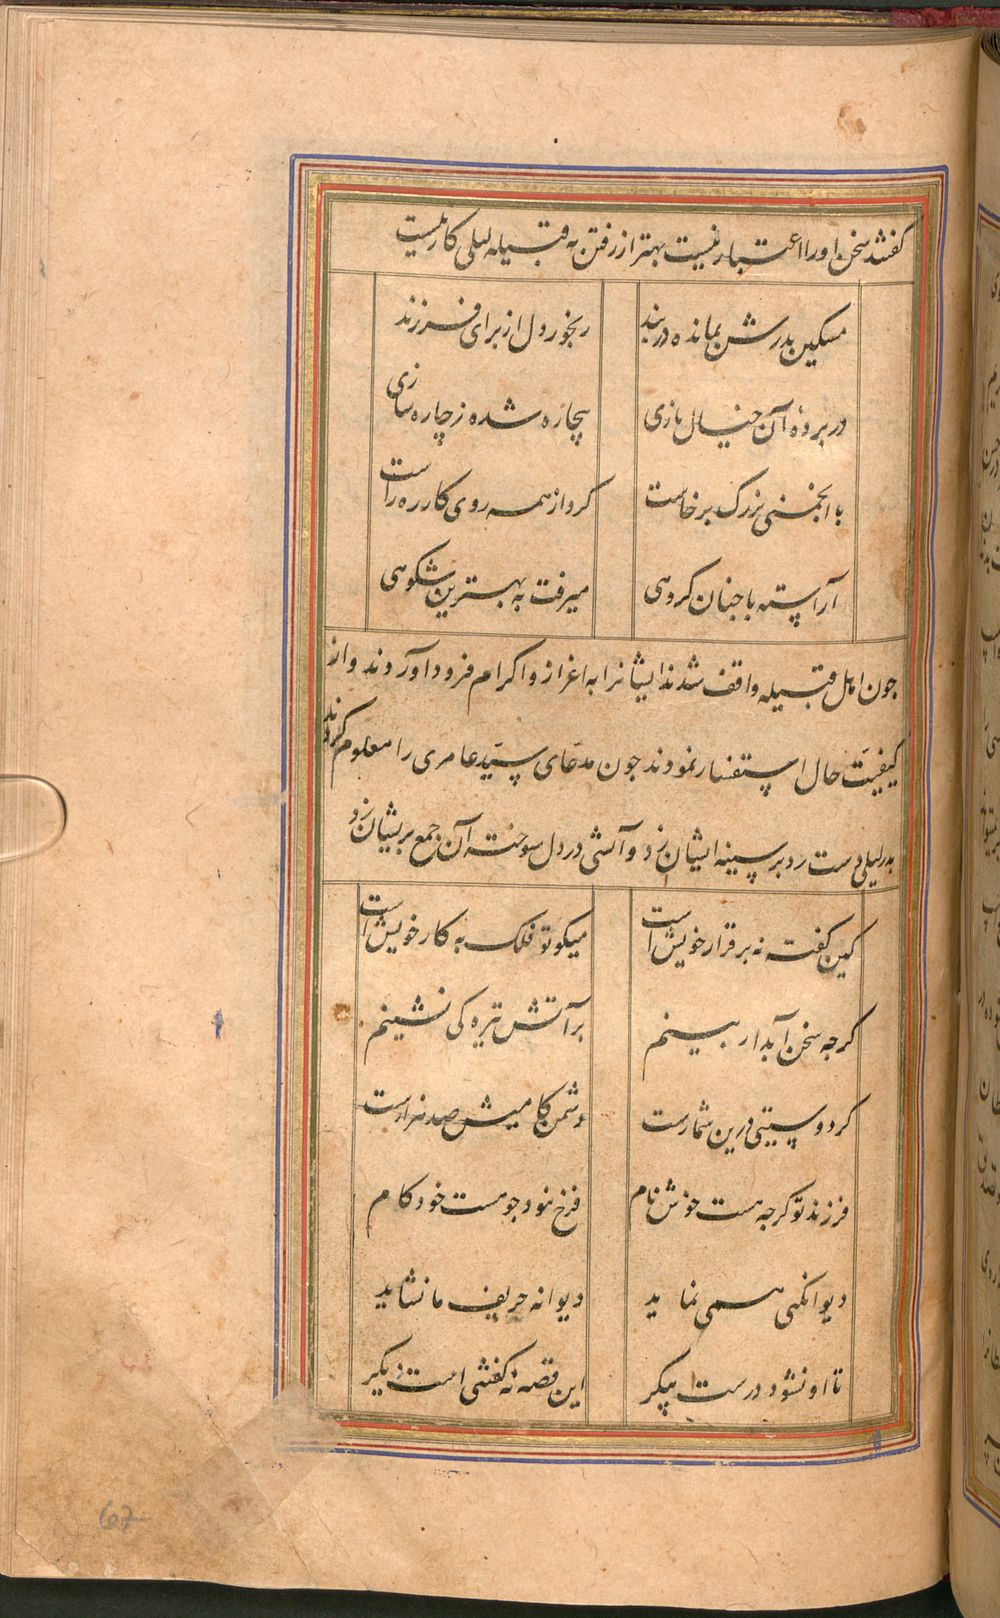 کفتند سخن او را اعتبار نیست بهتر از رفتن به قبیله لیلی کار نیست
مسکین بدرش بمانده در بند
رنجور دل از برای فرزند
در پرده آن خیال بازی
بیچاره شده ز چاره سازی
با انجمنی بزرک برخاست
کرد از همه روی کار ره راست
آراسته با جنان کروهی
میرفت به بهترین شکوهی
جون اهل قبیله واقف شدند ایشانرا به اعزاز و اکرام فرود آوردند و از
کیفیت حال استفسار نمودند جون مدعای سید عامری را معلوم کردند
بدر لیلی دست رد بر سینه ایشان زد و آتشی در دل سوخته آن جمع بریشان زد
کین کفته نه بر قرار خویش است
میکو تو فلک به کار خویش است
کرجه سخن آبدار بینم
بر آتش تیزه کی نشینم
کر دوستیی درین شمارست
دشمن کامیش صد هزارست
فرزند تو کرجه هست خوش نام
فرخ نبود جو هست خود کام
دیوانکی همی نماید
دیوانه حریف ما نشاید
تا او نشود درست پیکر
این قصه نه کفتنی است دیکر
67